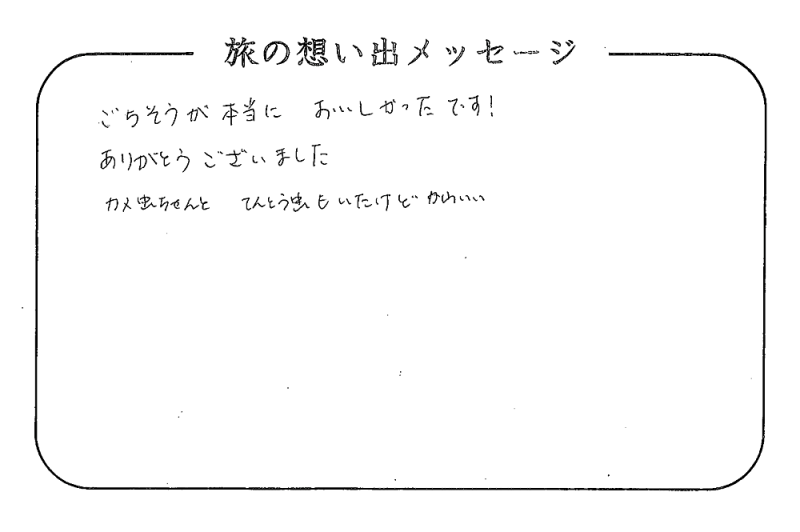 旅の想い出メッセージ
ごちそうが 本当に おいしかった です!
ありがとう ございました
カメ虫ちゃんと てんとう虫もいたけど かわいい